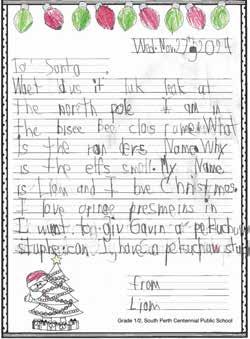 Wed Nov 27 2024
To: Santa
Waet dus it luk leak at
the north pole I am in
the bisee bee clas rame. What
is the ran ders Name. Why
is the elfs smoll. My Name
is Liam and I love Christmas.
I love oringe presmeins in
I want to giv Gavin a
can I have a
From
Liam
Grade 1/2, South Perth Centennial Public School